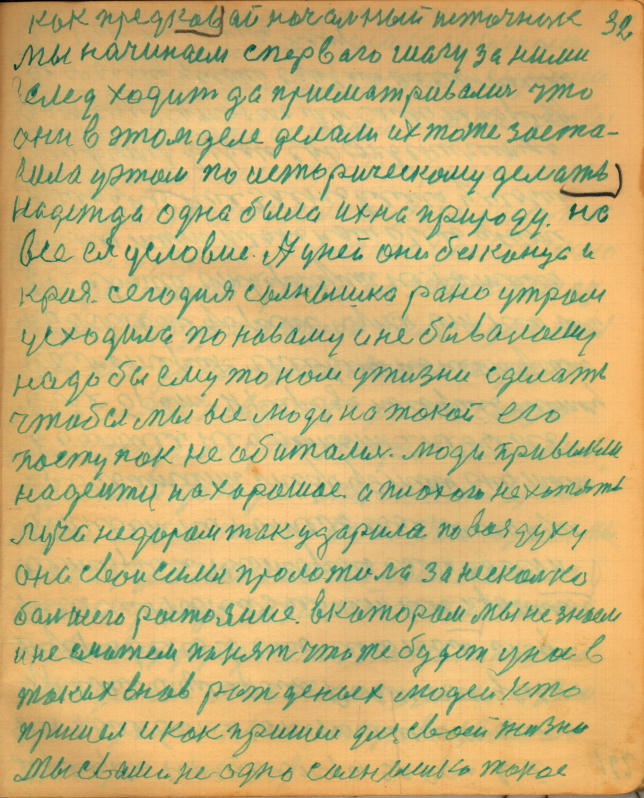 как предковай начальный источник 32
мы начинаем с перваго шагу за ними
след ходит да присматривались что
они в этом деле делали их тоже заста-
вила у этом по историческому делать
надежда одна была их на природу. на
все ея условие. А у ней они без конца и
края. сегодня солнышка рано утром
усходила по новаму и не бывалому
надо бы ему то нам у жизни сделать
чтобы мы все люди на такой его
поступок не обитались. люди привыкли
надеится на хорошое. а плохого не хотять
луча недаром так ударила по воздуху
она свои силы проложила за несколко
большего ростояние. в котором мы не знаем
и не сможем понят что же будет у нас в
таких внов рожденых людей. кто
пришел и как пришел для своей жизни
мы свами не одно солнышко такое